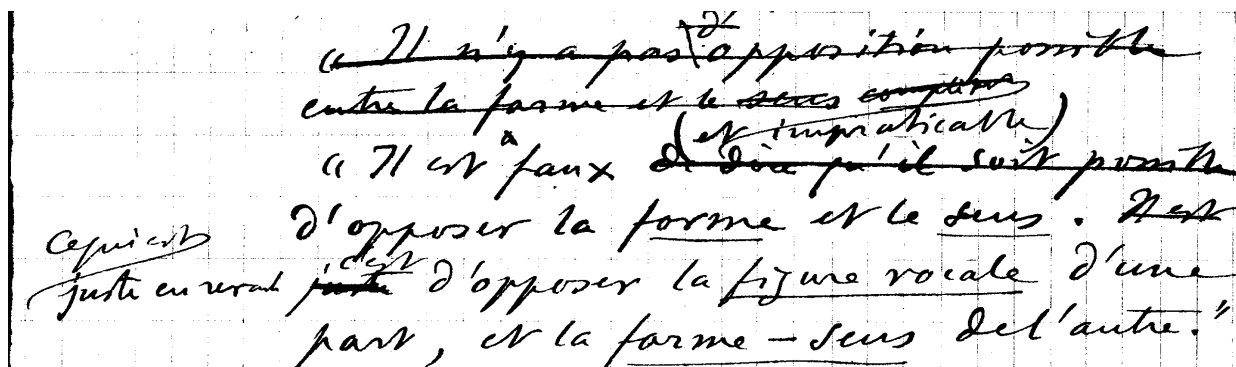 « Il n'y a pas d'opposition possible
entre la forme et le sens
(et impraticable)
« Il est faux de dire qu'il soit possible
d'opposer la forme et le sens. Il est
Ce qui est
juste en revanche juste c'est d'opposer la figure vocale d'une
part, et la forme-sens de l'autre. »